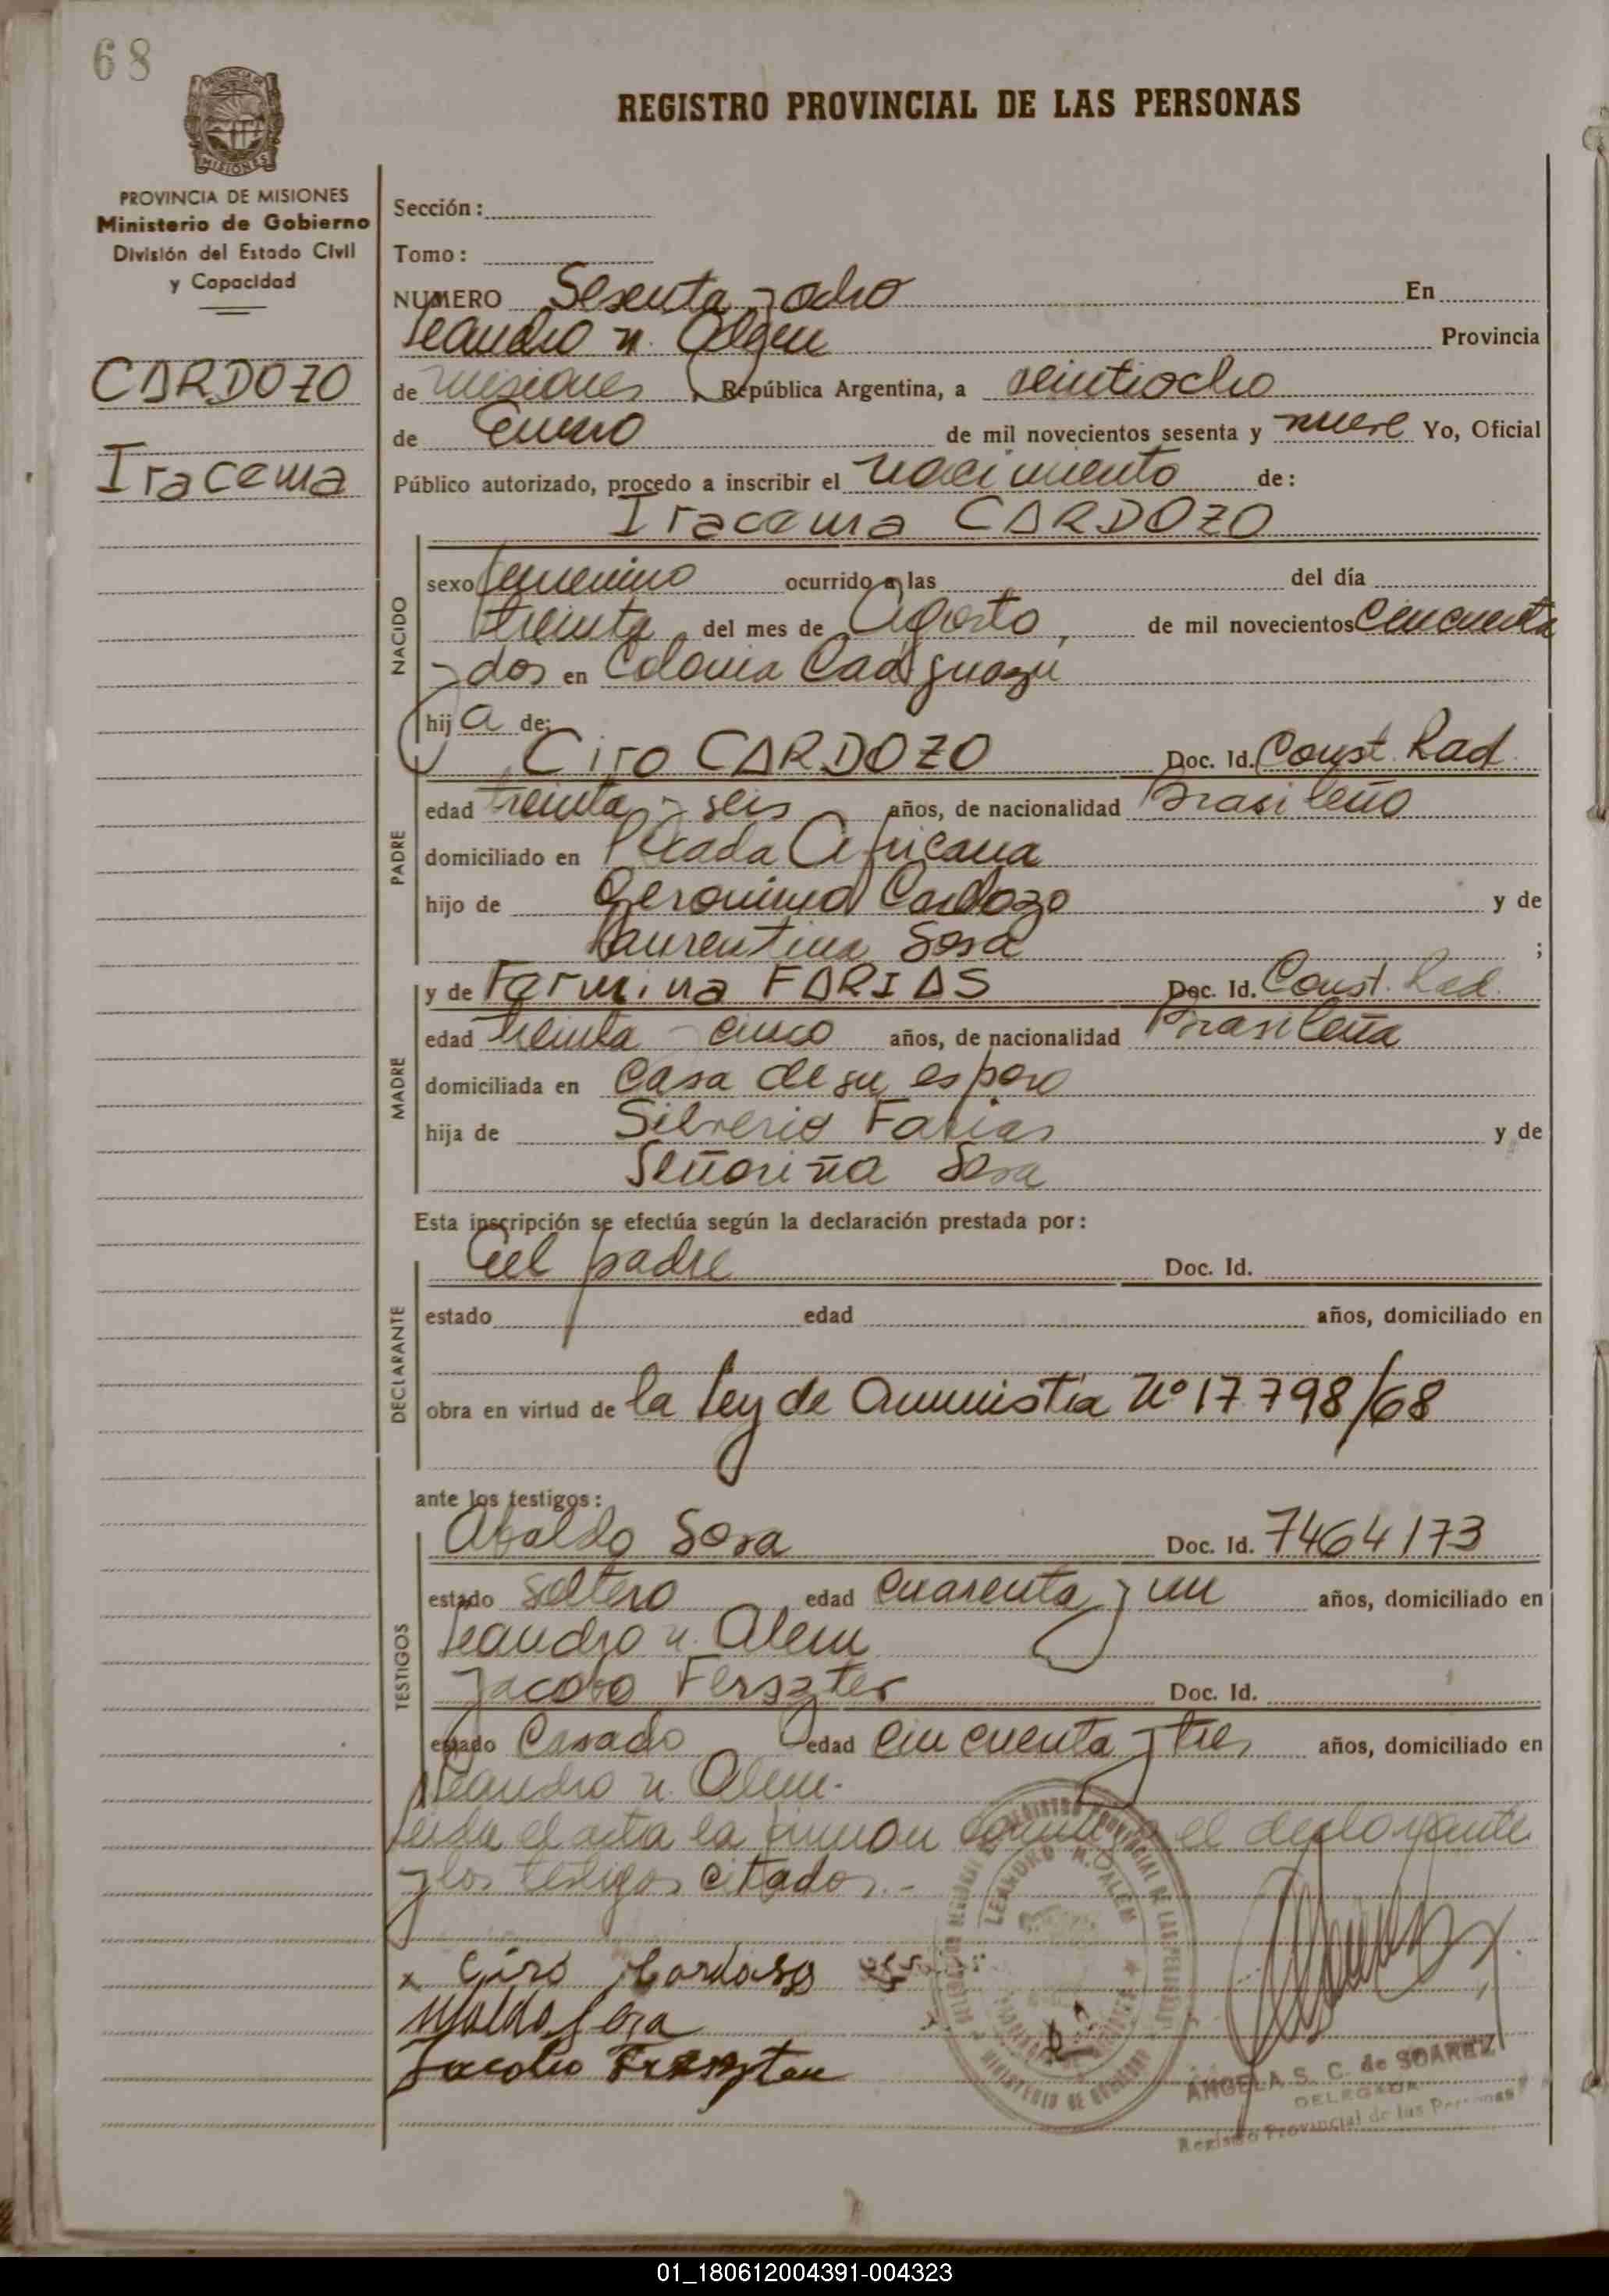 68
REGISTRO PROVINCIAL DE LAS PERSONAS
MISIONES
PROVINCIA DE MISIONES
Ministerio de Gobierno
División del Estado Civil
y Capacidad
CARDOZO
Iracema
Sección:
Tomo:
NUMERO Sesenta y ocho En
Leandro N. Alem Provincia
de Misiones, República Argentina, a veintiocho
de Enero de mil novecientos sesenta y nueve Yo, Oficial
Público autorizado, procedo a inscribir el nacimiento de:
Iracema CARDOZO
NACIDO
sexo femenino ocurrido a las del día
treinta del mes de Agosto, de mil novecientos cincuenta
y dos en Colonia Caá Guazú
hija de:
PADRE
Ciro CARDOZO Doc. Id. Const. Rad.
edad treinta y seis años, de nacionalidad Brasileño
domiciliado en Picada Africana
hijo de Geronimo Cardozo y de
Laurentina Sosa ;
MADRE
y de Farmina FARIAS Doc. Id. Const. Rad.
edad treinta y cinco años, de nacionalidad Brasileña
domiciliada en Casa de su esposo
hija de Silverio Farias y de
Señoriña Sosa
Esta inscripción se efectúa según la declaración prestada por:
DECLARANTE
el padre Doc. Id.
estado edad años, domiciliado en
obra en virtud de la Ley de Amnistia Nº 17798/68
ante los testigos:
TESTIGOS
Ubaldo Sosa Doc. Id. 7464173
estado Soltero edad cuarenta y un años, domiciliado en
Leandro N. Alem
Jacobo Ferszter Doc. Id.
estado Casado edad cincuenta y tres años, domiciliado en
Leandro N. Alem.
Leida el acta la firman conmigo el declarante
y los testigos citados.-
x Ciro Cardoso
Ubaldo Sosa
Jacobo Ferszter
REGISTRO PROVINCIAL DE LAS PERSONAS
LEANDRO N. ALEM
MINISTERIO DE GOBIERNO
ANGELA S. C. de SOAREZ
DELEGADA
Registro Provincial de las Personas
01_180612004391-004323